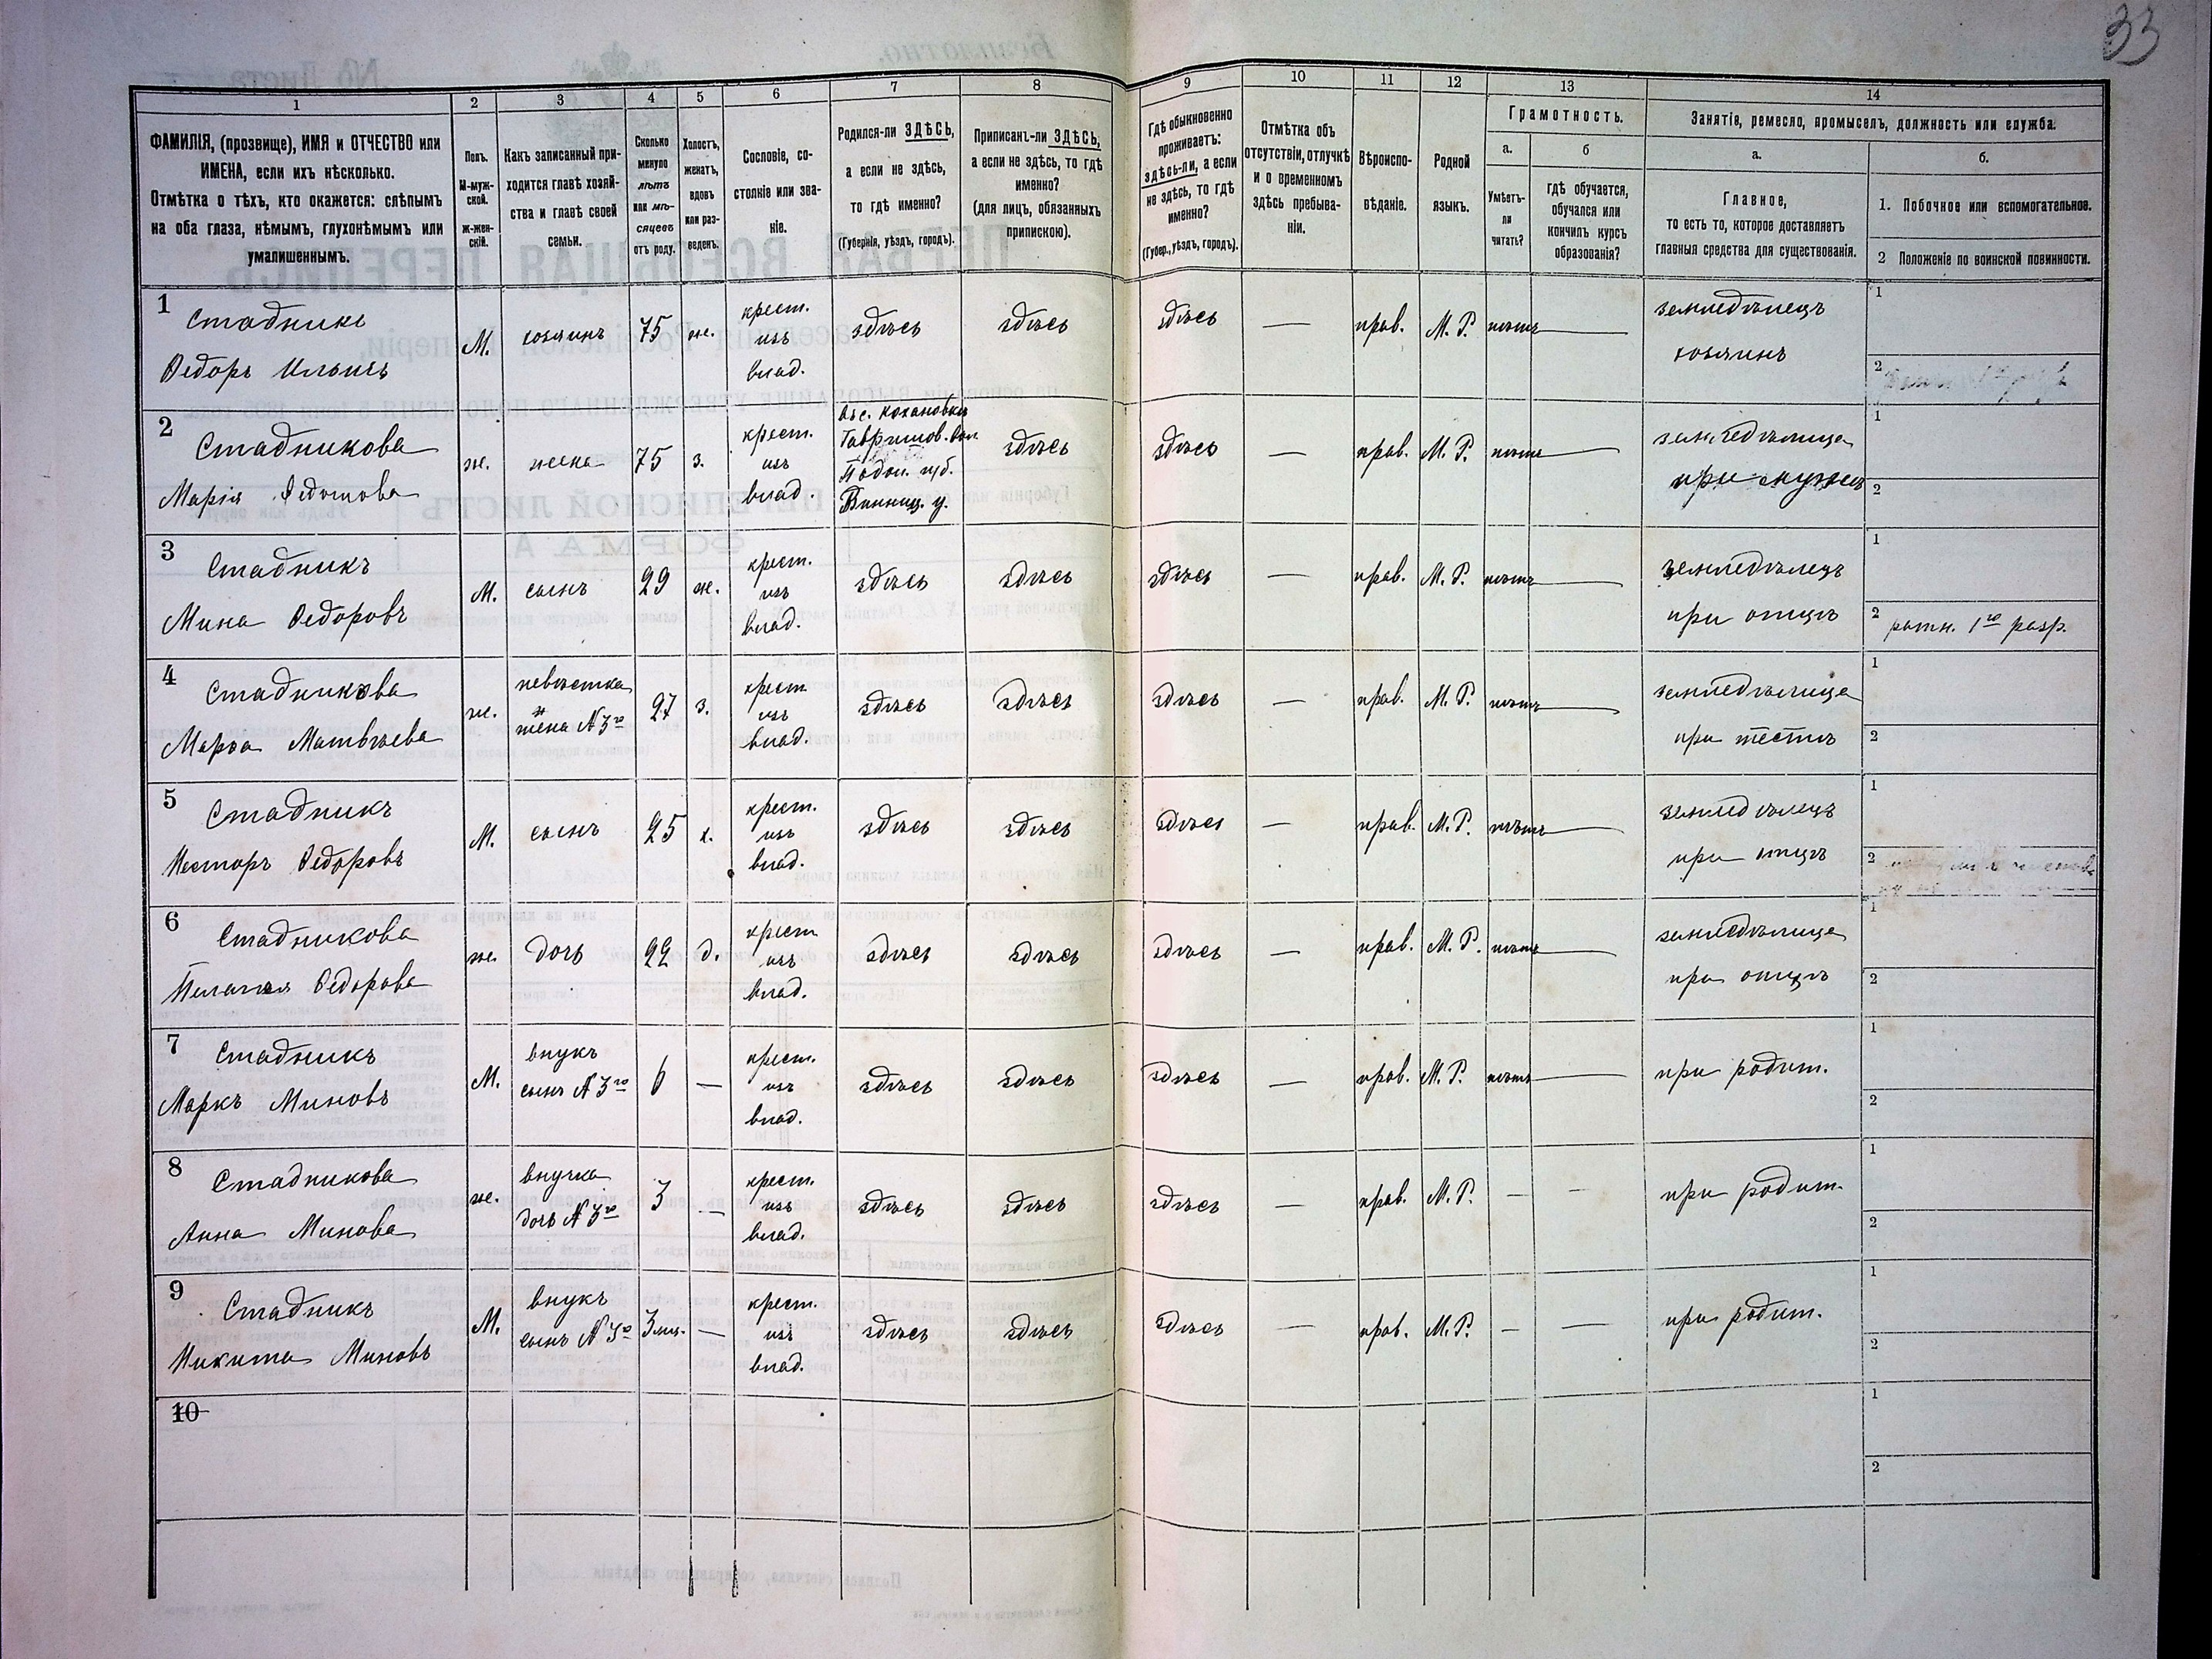 33
1 2 3 4 5 6 7 8 9 10 11 12 13 14
ФАМИЛІЯ, (прозвище), ИМЯ и ОТЧЕСТВО или
ИМЕНА, если ихъ нѣсколько.
Отмѣтка о тѣхъ, кто окажется: слѣпымъ
на оба глаза, нѣмымъ, глухонѣмымъ или
умалишеннымъ.
Полъ.
М-муж-
ской.
ж-жен-
скій.
Какъ записанный при-
ходится главѣ хозяй-
ства и главѣ своей
семьи.
Сколько
минуло
лѣтъ
или мѣ-
сяцевъ
отъ роду.
Холостъ,
женатъ,
вдовъ
или раз-
веденъ.
Сословіе, со-
стояніе или зва-
ніе.
Родился-ли ЗДѢСЬ,
а если не здѣсь,
то гдѣ именно?
(Губернія, уѣздъ, городъ).
Приписанъ-ли ЗДѢСЬ,
а если не здѣсь, то гдѣ
именно?
(для лицъ, обязанныхъ
припискою).
Гдѣ обыкновенно
проживаетъ:
здѣсь-ли, а если
не здѣсь, то гдѣ
именно?
(Губер., уѣздъ, городъ).
Отмѣтка объ
отсутствіи, отлучкѣ
и о временномъ
здѣсь пребыва-
ніи.
Вѣроиспо-
вѣданіе.
Родной
языкъ.
Грамотность.
а.
Умѣетъ-
ли
читать?
б
гдѣ обучается,
обучался или
кончилъ курсъ
образованія?
Занятіе, ремесло, промыселъ, должность или служба.
а.
Главное,
то есть то, которое доставляетъ
главныя средства для существованія.
б.
1. Побочное или вспомогательное.
2 Положеніе по воинской повинности.
1
Стадникъ
Федоръ Ильичъ
М.
хозяинъ
75
ж.
крест.
изъ
влад.
здѣсь
здѣсь
здѣсь
—
прав.
М. Р.
нѣтъ
земледѣлецъ
хозяинъ
1
2
2
Стадникова
Марія Федотова
ж.
жена
75
з.
крест.
изъ
влад.
въ с. Кохановкѣ
Подол. губ.
Винниц. у.
здѣсь
здѣсь
—
прав.
М. Р.
нѣтъ
земледѣлица
при мужѣ
1
2
3
Стадникъ
Мина Федоровъ
М.
сынъ
29
ж.
крест.
изъ
влад.
здѣсь
здѣсь
здѣсь
—
прав.
М. Р.
нѣтъ
земледѣлецъ
при отцѣ
1
2 ратн. 1го разр.
4
Стадникова
Марѳа Матвѣева
ж.
невѣстка
и
жена №3го
27
з.
крест
изъ
влад.
здѣсь
здѣсь
здѣсь
—
прав.
М. Р.
нѣтъ
земледѣлица
при тестѣ
1
2
5
Стадникъ
Несторъ Федоровъ
М.
сынъ
25
х.
крест.
изъ
влад.
здѣсь
здѣсь
здѣсь
—
прав.
М. Р.
нѣтъ
земледѣлецъ
при отцѣ
1
2
6
Стадникова
Пелагея Федорова
ж.
дочь
22
д.
крест
изъ
влад.
здѣсь
здѣсь
здѣсь
—
прав.
М. Р.
нѣтъ
земледѣлица
при отцѣ
1
2
7
Стадникъ
Маркъ Миновъ
М.
внукъ
сынъ №3го
6
—
крест.
изъ
влад.
здѣсь
здѣсь
здѣсь
—
прав.
М. Р.
нѣтъ
при родит.
1
2
8
Стадникова
Анна Минова
ж.
внучка
дочь №3го
3
—
крест.
изъ
влад.
здѣсь
здѣсь
здѣсь
—
прав.
М. Р.
—
—
при родит.
1
2
9
Стадникъ
Никита Миновъ
М.
внукъ
сынъ №3го
3 мѣс.
—
крест.
изъ
влад.
здѣсь
здѣсь
здѣсь
—
прав.
М. Р.
—
—
при родит.
1
2
10
1
2